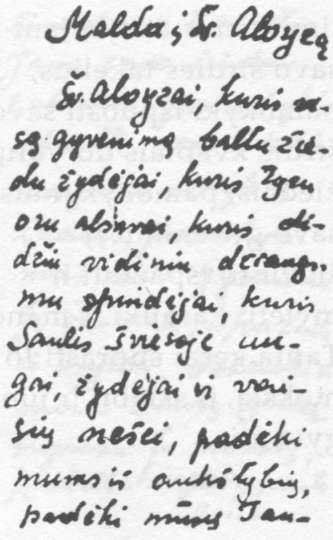 Malda į Šv. Aloyzą
Šv. Aloyzai, kuris vi-
są gyvenimą baltu žie-
du žydėjai, kuris tyru
oru alsavai, kuris di-
džiu vidiniu drąsu-
mu spindėjai, kuris
Saulės šviesoje nu-
gai žydėjai ir vai-
sių nešei, padėki
mums iš aukštybių,
padėki mūsų Tau-